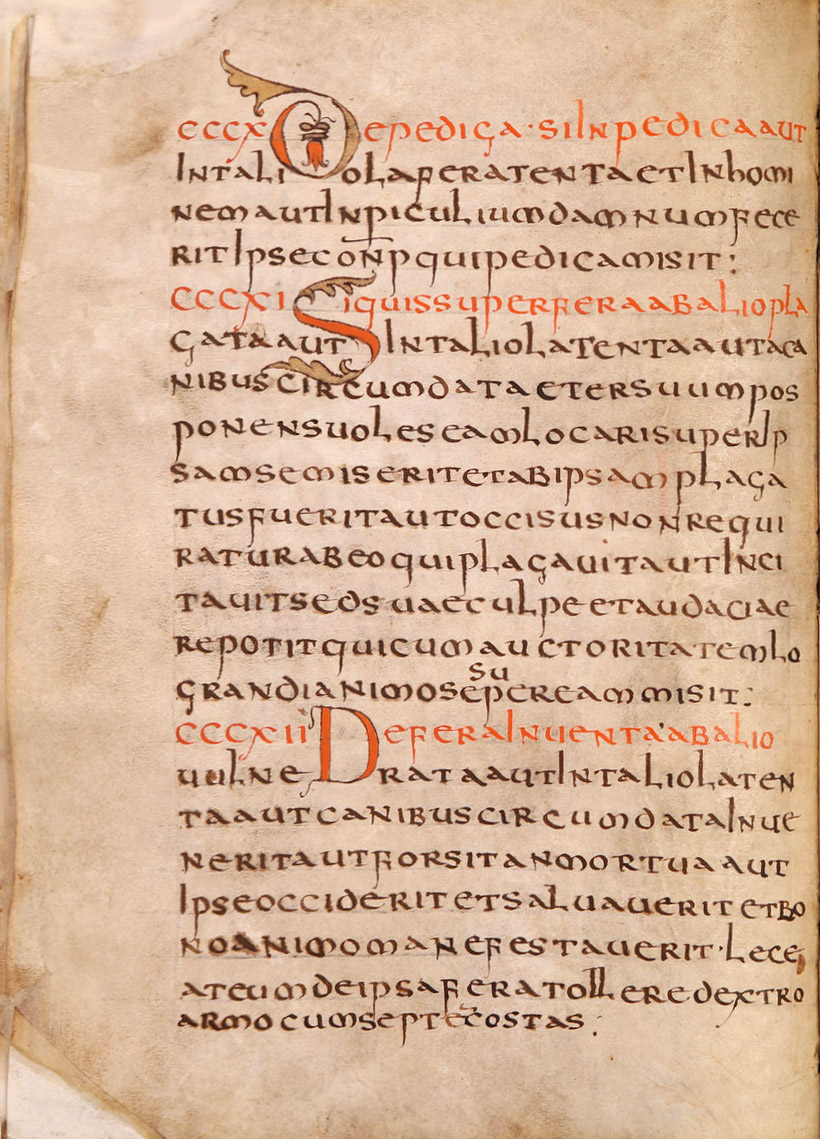 CCCX De pediga · si in pedica aut
in taliola fera tenta et in homi
nem aut in piculiium damnum fece
rit ipse conp qui pedica misit :
CCCXI Si quis super fera ab alio pla
gata aut in taliola tenta aut a ca
nibus circumdata et er suum pos
ponens uoles eam locari super ip
sam se miserit et ab ipsam plaga
tus fuerit aut occisus non requi
ratur ab eo qui plagauit aut inci
tauit sed suae culpe et audaciae
repotit qui cum auctoritatem lo
grandi animo se super eam misit :
CCCXII De fera inuenta ab alio
uulnerata aut in taliola ten
ta aut canibus circumdata inue
nerit aut forsitan mortua aut
ipse occiderit et saluauerit et bo
no animo manefestauerit · lece
at eum de ipsa fera tollere dextro
armo cum septē costas :